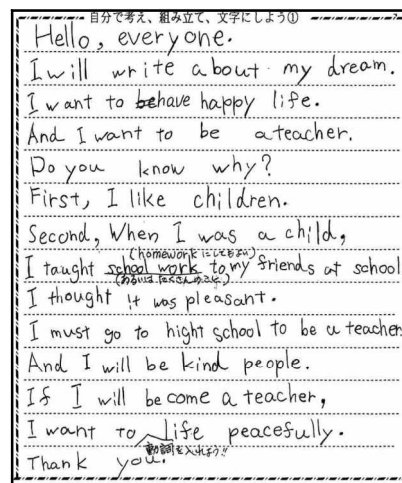 自分で考え、組み立て、文字にしよう①
Hello, everyone.
I will write about my dream.
I want to behave happy life.
And I want to be a teacher.
Do you know why?
First, I like children.
Second, When I was a child,
(homeworkにしてもよい)
I taught school work to my friends at school
(あるいは たくさんのこと)
I thought it was pleasant.
I must go to hight school to be a teacher
And I will be kind people.
If I will become a teacher,
I want to life peacefully.
動詞を入れよう!!
Thank you.